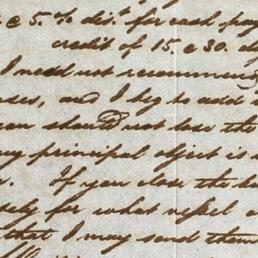 @ 5 % dis.t for each pay
credit of 15. @ 30. d
I need not recommend
ses, and I beg to add
you should not lose the
my principal object is
. If you close the
for what vessel
that I may send them